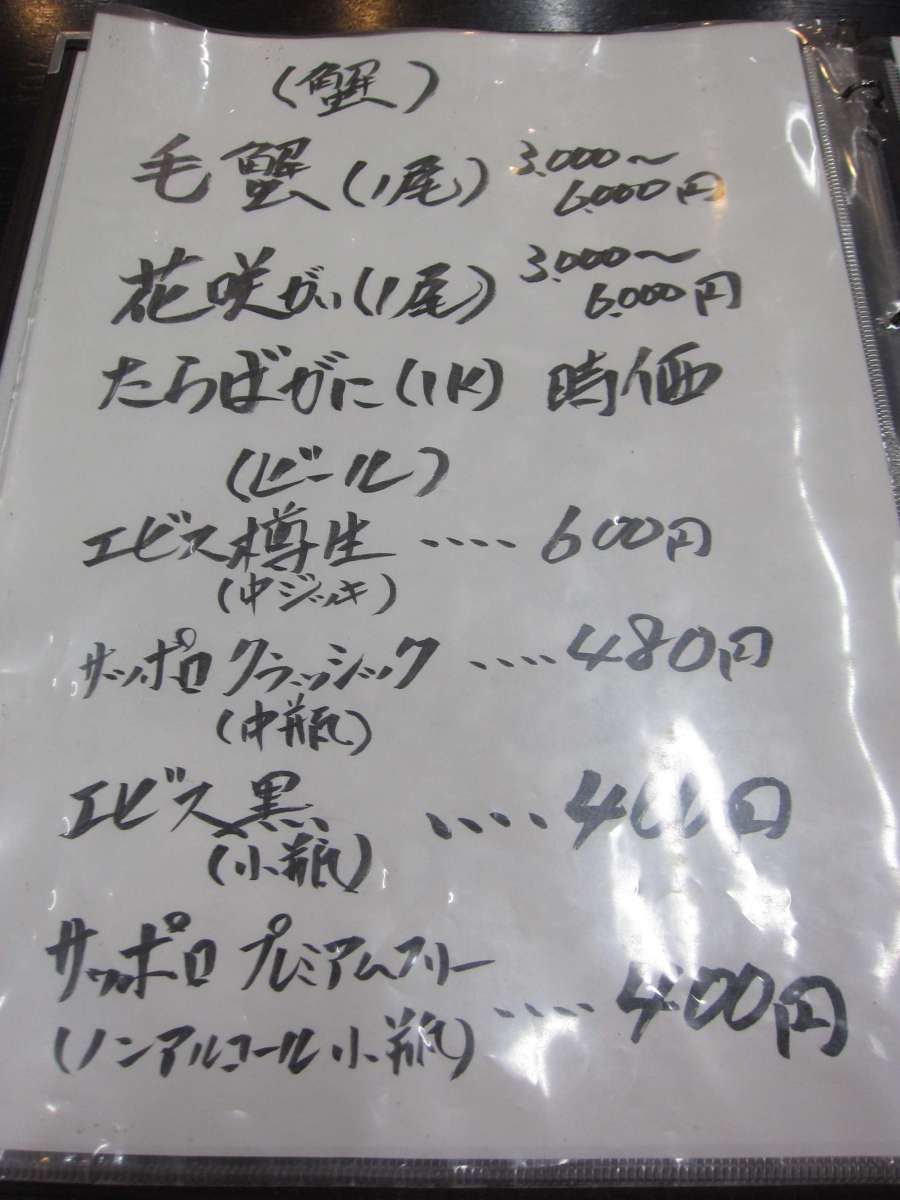 (蟹)
毛蟹(1尾) 3,000〜6,000円
花咲がに(1尾) 3,000〜6,000円
たらばがに(1K) 時価
(ビール)
エビス樽生 ‥‥ 600円
(中ジョッキ)
サッポロ クラッシック ‥‥ 480円
(中瓶)
エビス黒 ‥‥ 400円
(小瓶)
サッポロ プレミアムフリー
(ノンアルコール小瓶) ‥‥ 400円